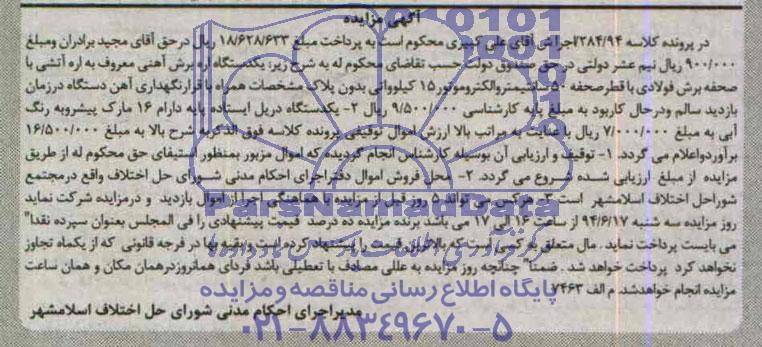 آگهی مزایده
در پرونده کلاسه ۲۸۴/۹۴/اجرا ش آقای علی کبیری محکوم است به پرداخت مبلغ ۱۸/۶۲۸/۶۳۳ ریال در حق آقای مجید برادران ومبلغ
۹۰۰/۰۰۰ ریال نیم عشر دولتی در حق صندوق دولت حسب تقاضای محکوم له به شرح زیر: یکدستگاه اره برش آهنی معروف به اره آتشی با
صفحه برش فولادی با قطرصفحه ۵۰ سانتیمتروالکتروموتور ۱۵ کیلواتی بدون پلاک مشخصات همراه با قرارنگهداری آهن دستگاه درزمان
بازدید سالم ودرحال کاربود به مبلغ پایه کارشناسی ۹/۵۰۰/۰۰۰ ریال ۲- یکدستگاه دریل ایستاده پایه دارام ۱۶ مارک پیشروبه رنگ
آبی به مبلغ ۷/۰۰۰/۰۰۰ ریال با عنایت به مراتب بالا ارزش اموال توقیفی پرونده کلاسه فوق الذکربه شرح بالا به مبلغ ۱۶/۵۰۰/۰۰۰
برآوردواعلام می گردد. ۱- توقیف و ارزیابی آن بوسیله کارشناس انجام گردیده که اموال مزبور بمنظور استیفای حق محکوم له از طریق
مزایده از مبلغ ارزیابی شده شروع می گردد. ۲- محل فروش اموال دفتراجرای احکام مدنی شورای حل اختلاف واقع درمجتمع
شوراحل اختلاف اسلامشهر است ۳- هرکس می تواند ۵ روز قبل از مزایده با هماهنگی اجرا از اموال بازدید و درمزایده شرکت نماید
روز مزایده سه شنبه ۹۴/۶/۱۷ از ساعت ۱۶ الی ۱۷ می باشد برنده مزایده ده درصد قیمت پیشنهادی را فی المجلس بعنوان سپرده نقدا"
می بایست پرداخت نماید . مال متعلق به کسی است که بالاترین قیمت را پیشنهاد کرده است و بقیه بها در فرجه قانونی که از یکماه تجاوز
نخواهد کرد پرداخت خواهد شد . ضمنا" چنانچه روز مزایده به عللی مصادف با تعطیلی باشد فردای همانروزدرهمان مکان و همان ساعت
مزایده انجام خواهدشد. م الف ۷۴۶۳
مدیراجرای احکام مدنی شورای حل اختلاف اسلامشهر
ParsNamadData
پایگاه اطلاع رسانی مناقصه و مزایده
۰۲۱-۸۸۳۴۹۶۷۰-۵